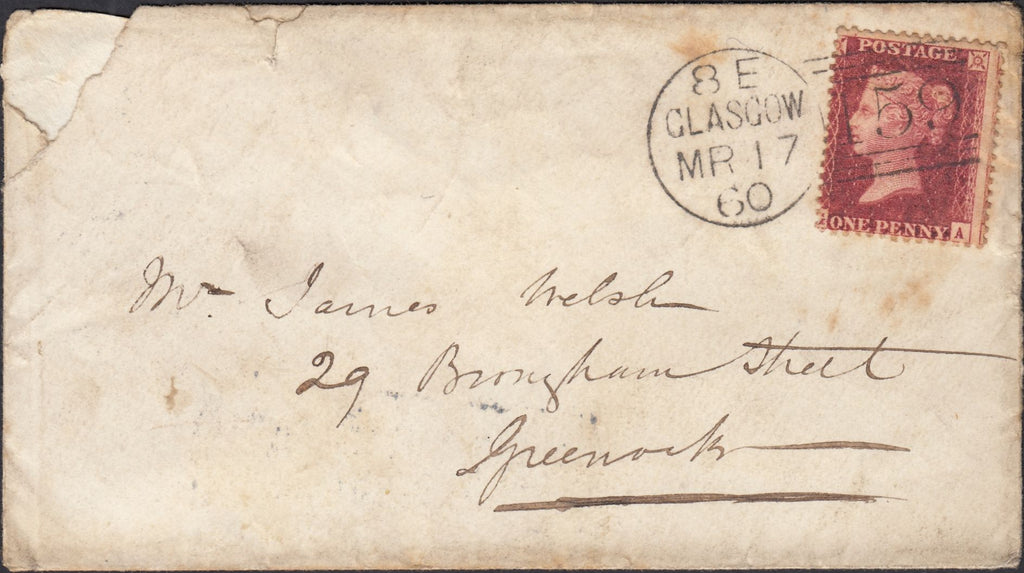 8 E
GLASGOW
MR 17
60
POSTAGE
159
ONE PENNY A
Mr James Welsh
29 Brougham Street
Greenock